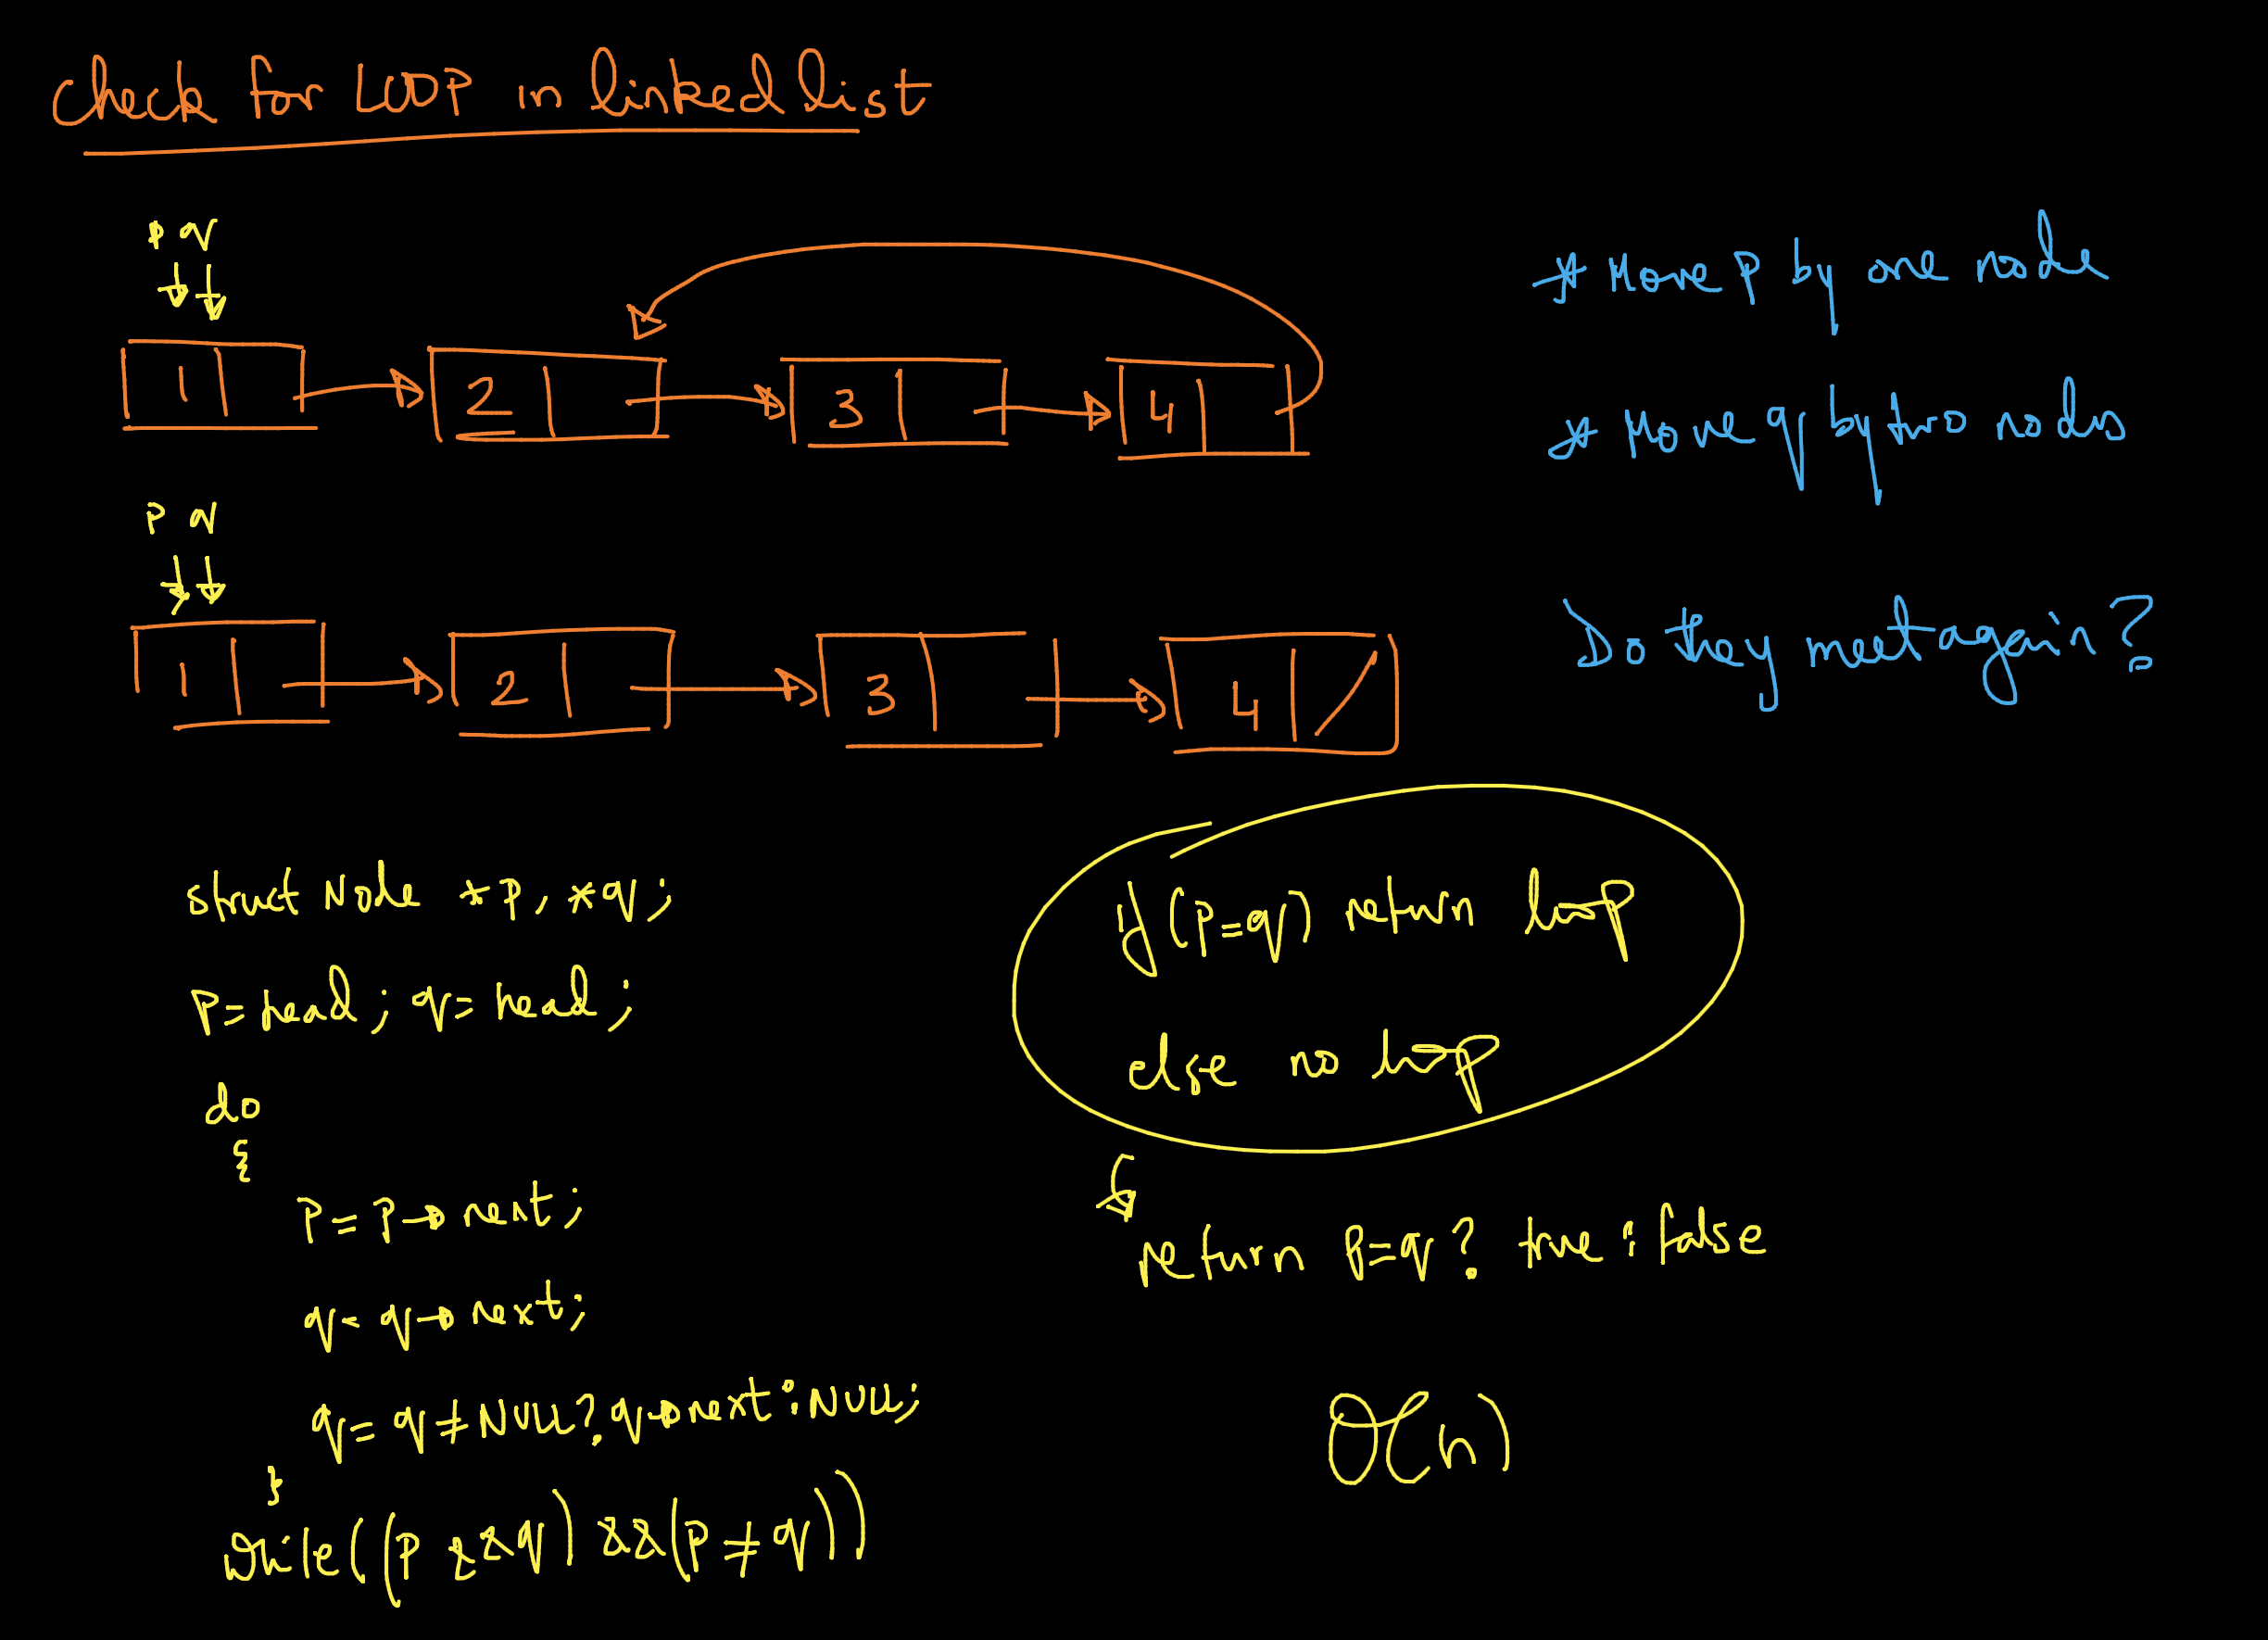 Check for LOOP in linked list
p q
* Move p by one node
1 2 3 4
* Move q by two nodes
p q
1 2 3 4
Do they meet again?
struct Node *p, *q;
p=head; q=head;
do
{
p=p→next;
q=q→next;
q=q≠NULL?q→next:NULL;
}
while((p &&q) &&(p≠q))
if(p=q) return loop
else no loop
return p=q? true:false
O(n)